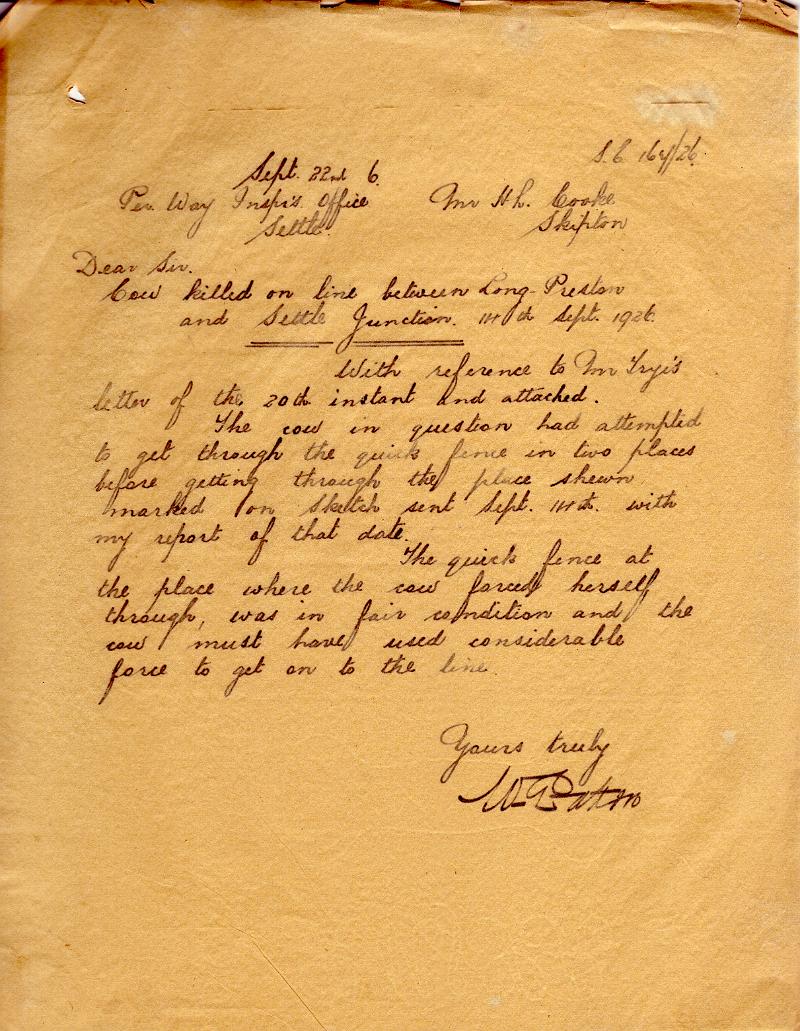 S.C. 164/26.
Sept. 22nd 6.
Per. Way Inspr's. Office
Settle.
Mr H. L. Cooke
Skipton
Dear Sir.
Cow killed on line between Long-Preston
and Settle Junction. 14th Sept. 1926.
With reference to Mr
letter of the 20th instant and attached.
The cow in question had attempted
to get through the quick fence in two places
before getting through the place shewn
marked on sketch sent Sept. 14th. with
my report of that date.
The quick fence at
the place where the cow forced herself
through, was in fair condition and the
cow must have used considerable
force to get on to the line.
Yours truly